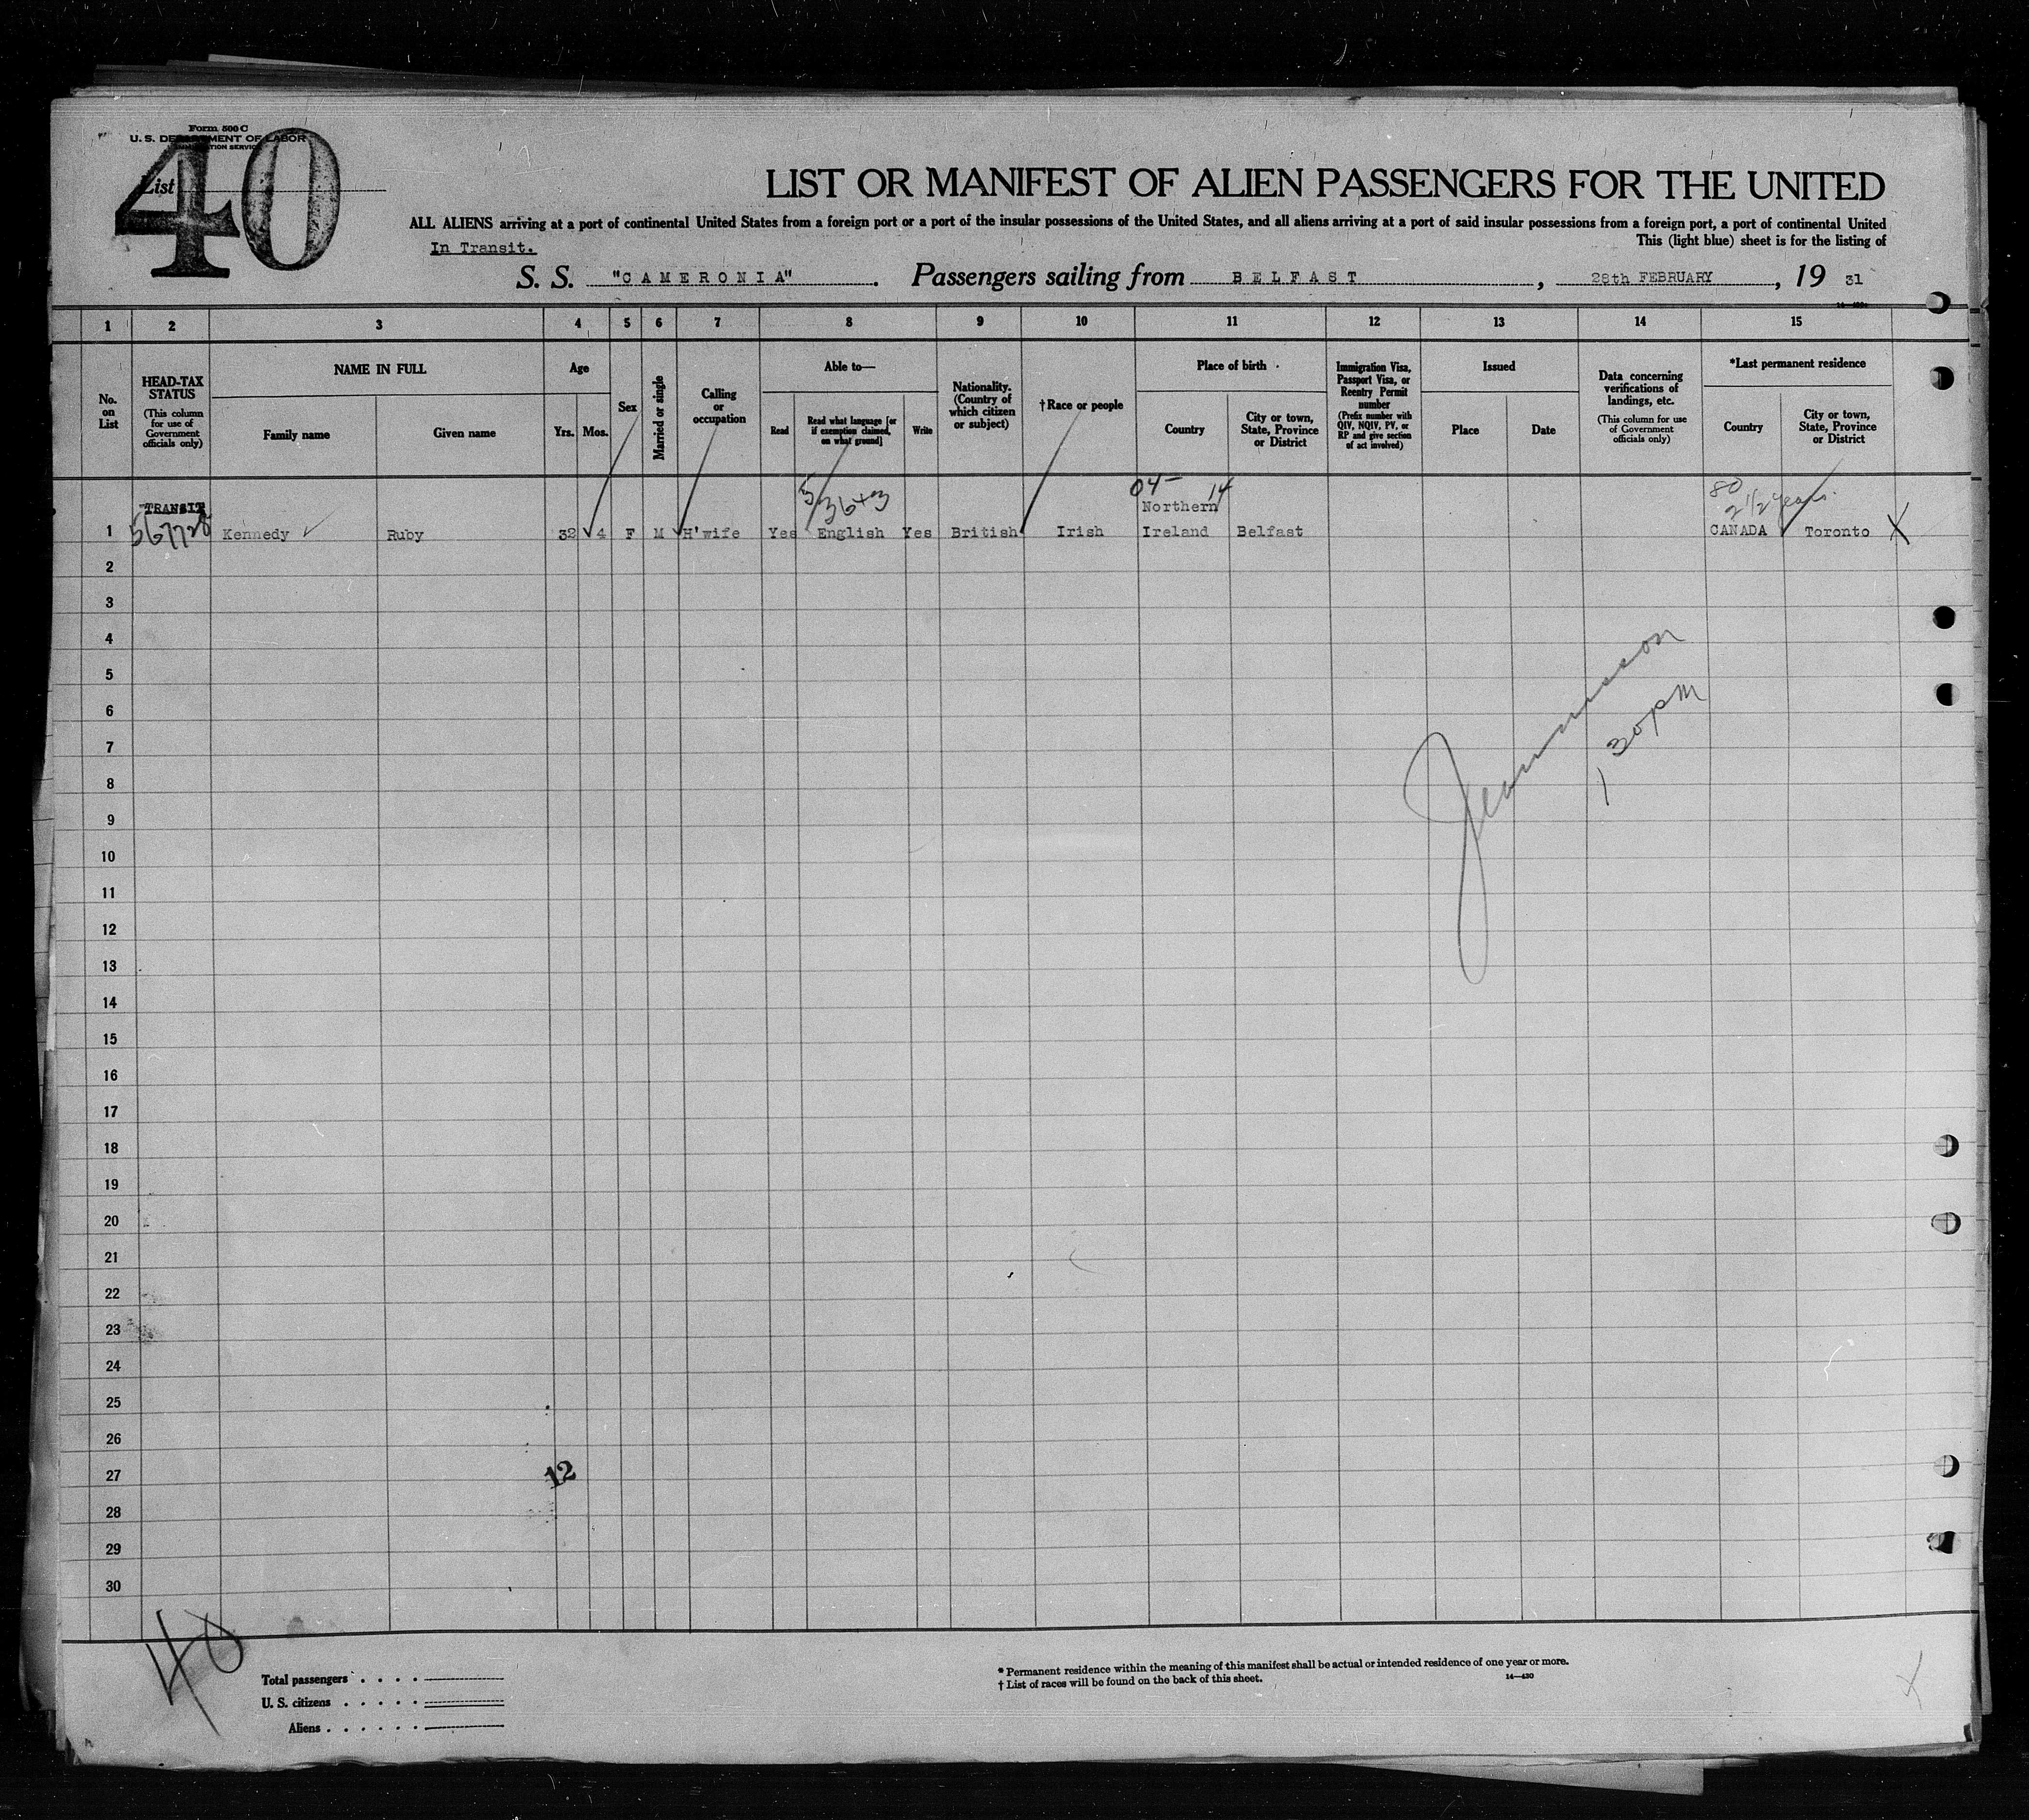 Form 500 C
U. S. DEPARTMENT OF LABOR
IMMIGRATION SERVICE
List
40
LIST OR MANIFEST OF ALIEN PASSENGERS FOR THE UNITED
ALL ALIENS arriving at a port of continental United States from a foreign port or a port of the insular possessions of the United States, and all aliens arriving at a port of said insular possessions from a foreign port, a port of continental United
In Transit.
This (light blue) sheet is for the listing of
S. S. "CAMERONIA". Passengers sailing from BELFAST, 28th FEBRUARY, 19 31
1 2 3 4 5 6 7 8 9 10 11 12 13 14 15
No. on List
HEAD-TAX STATUS
(This column for use of Government officials only)
NAME IN FULL
Family name
Given name
Age
Yrs. Mos.
Sex
Married or single
Calling or occupation
Able to—
Read
Read what language [or if exemption claimed, on what ground]
Write
Nationality. (Country of which citizen or subject)
†Race or people
Place of birth
Country
City or town, State, Province or District
Immigration Visa, Passport Visa, or Reentry Permit number
(Prefix number with QIV, NQIV, PV, or RP and give section of act involved)
Issued
Place
Date
Data concerning verifications of landings, etc.
(This column for use of Government officials only)
*Last permanent residence
Country
City or town, State, Province or District
TRANSIT 5 36+3 04- 14 Northern 80 2 1/2 years.
1 567728 Kennedy Ruby 32 4 F M H'wife Yes English Yes British Irish Ireland Belfast CANADA Toronto X
2
3
4
5
6
7
8
9
10
11
12
13
14
15
16
17
18
19
20
21
22
23
24
25
26
27
28
29
30
1 30 pm
12
40
Total passengers
U. S. citizens
Aliens
* Permanent residence within the meaning of this manifest shall be actual or intended residence of one year or more.
† List of races will be found on the back of this sheet.
14—430
X